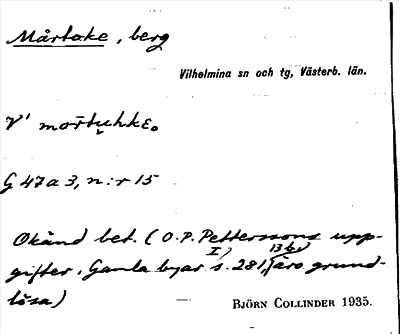 Mårtake, berg
Vilhelmina sn och tg, Västerb. län.
V' mo
G 47a3, n:r 15
Okänd bet. (O.P. Petterssons upp-
gifter i Gamla byar I) s. 281, 13 b) äro grund-
lösa)
BJÖRN COLLINDER 1935.